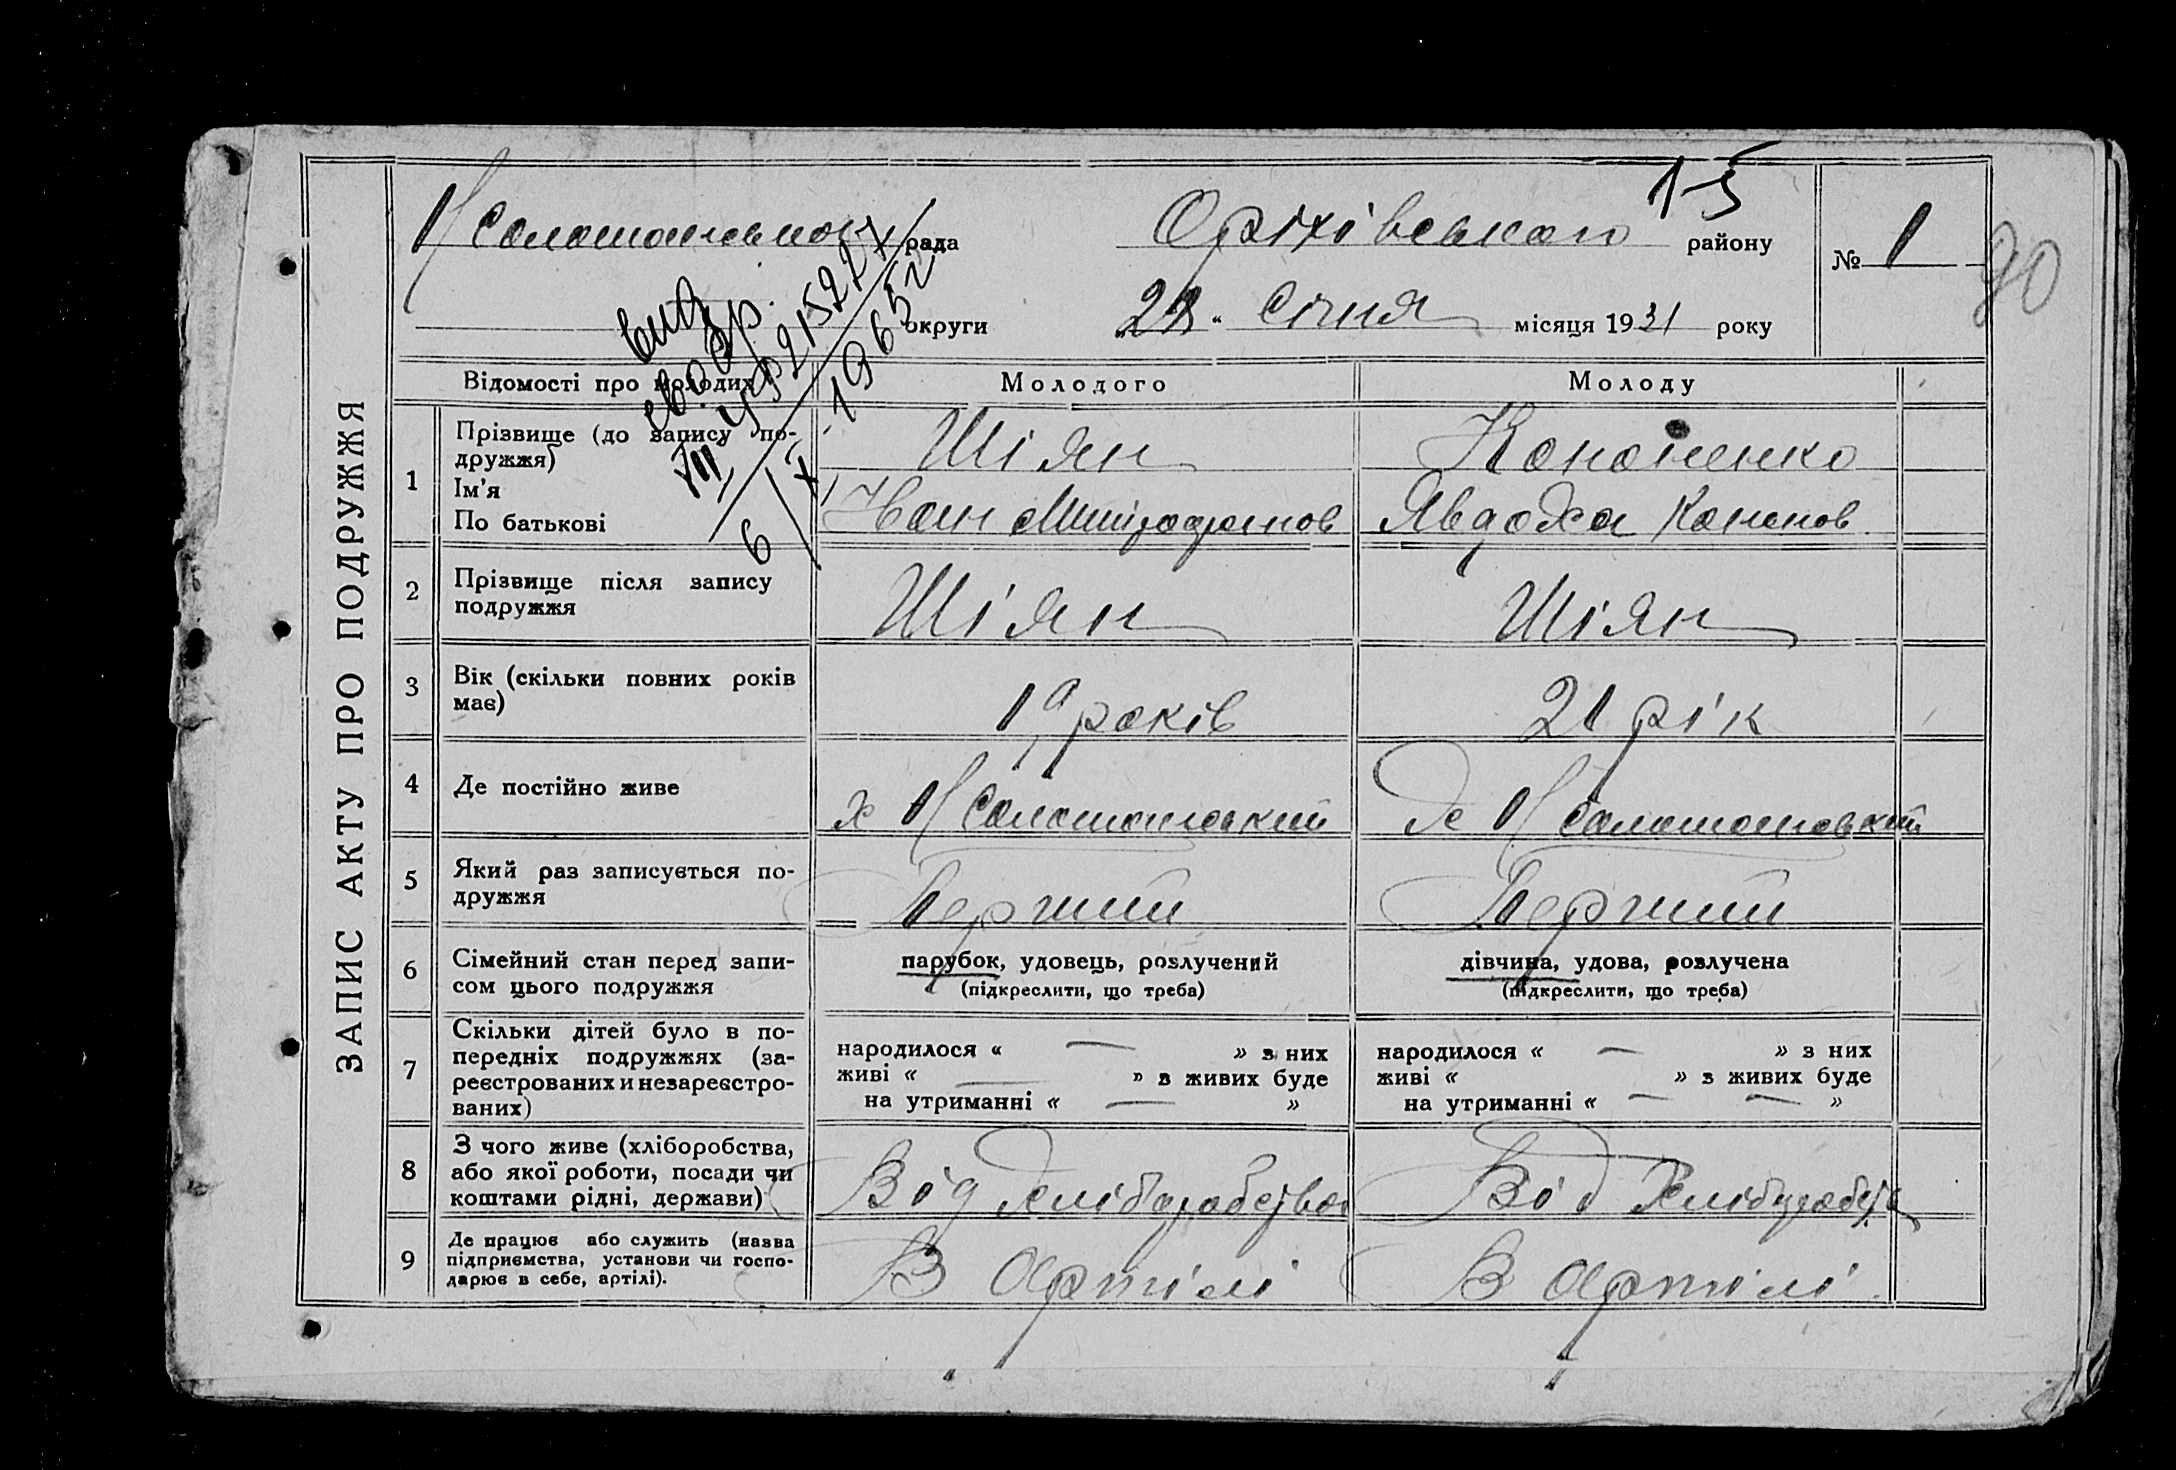 15
рада
Оріхівського району
№ 1
90
округи
січня місяця 1931 року
вид
Відомості про молодих
Молодого
Молоду
ЗАПИС АКТУ ПРО ПОДРУЖЖЯ
1
Прізвище (до запису по-
дружжя)
Ім'я
По батькові
Шіян
Кононенко
Іван Митрофанов
Явдоха Кононов
6/X 1965
2
Прізвище після запису
подружжя
Шіян
Шіян
3
Вік (скільки повних років
має)
19 років
21 рік
4
Де постійно живе
х
де
5
Який раз записується по-
дружжя
Перший
Перший
6
Сімейний стан перед запи-
сом цього подружжя
парубок, удовець, розлучений
(підкреслити, що треба)
дівчина, удова, розлучена
(підкреслити, що треба)
7
Скільки дітей було в по-
передніх подружжях (за-
реєстрованих и незареєстро-
ваних)
народилося « — » з них
живі « — » з живих буде
на утриманні « — »
народилося « — » з них
живі « » з живих буде
на утриманні « — — »
8
З чого живе (хліборобства,
або якої роботи, посади чи
коштами рідні, держави)
Від хліборобства
Від хліборобств
9
Де працює або служить (назва
підприємства, установи чи госпо-
дарює в себе, артілі).
В артілі
В артілі